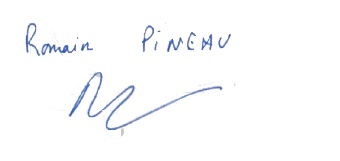 Romain PiNEAU